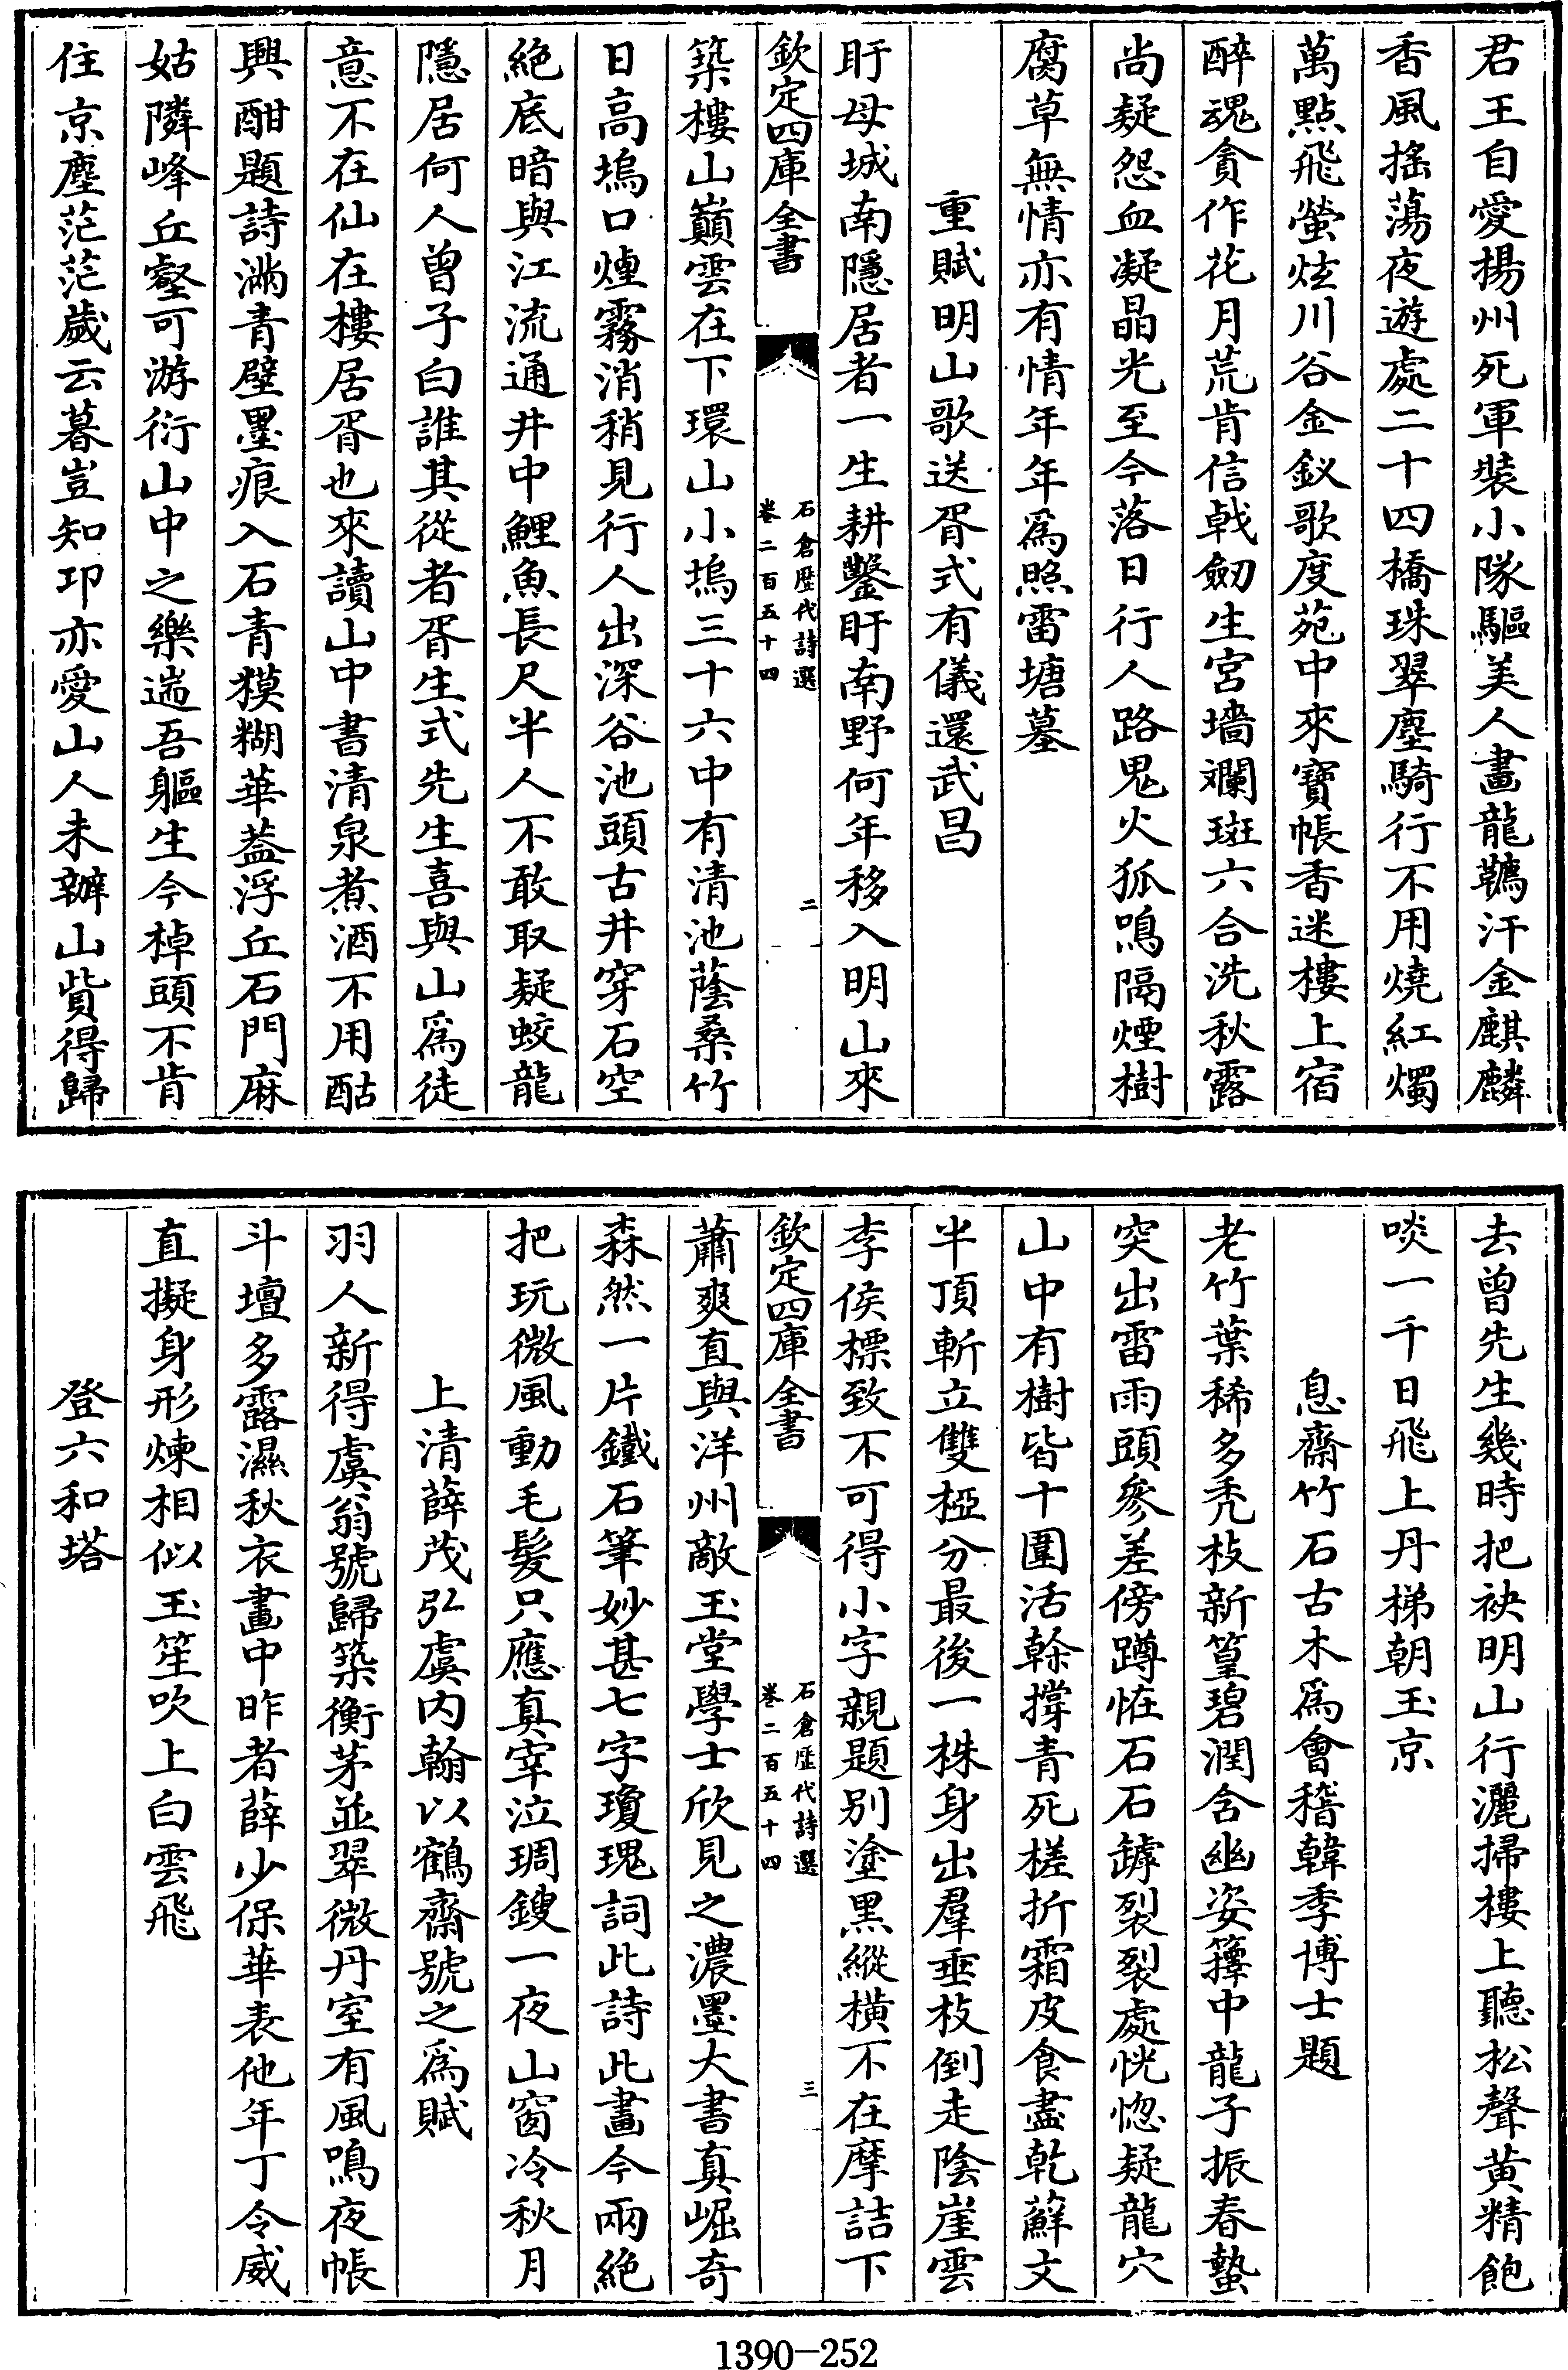 君王自愛揚州死軍裝小隊驅美人畫龍韉汗金麒麟
香風摇蕩夜遊處二十四橋珠翠塵騎行不用燒紅燭
萬點飛螢炫川谷金釵歌度苑中來寶帳香迷樓上宿
醉魂貪作花月荒肯信戟劒生宮墻斕斑六合洗秋露
尚疑怨血凝晶光至今落日行人路鬼火狐鳴隔煙樹
腐草無情亦有情年年為照雷塘墓
重賦明山歌送胥式有儀還武昌
盱母城南隱居者一生耕鑿盱南野何年移入明山來
欽定四庫全書
石倉歷代詩選
卷二百五十四
二
築樓山巔雲在下環山小塢三十六中有清池蔭桑竹
日高塢口煙霧消稍見行人出深谷池頭古井穿石空
絶底暗與江流通井中鯉魚長尺半人不敢取疑蛟龍
隱居何人曾子白誰其從者胥生式先生喜與山為徒
意不在仙在樓居胥也來讀山中書清泉煮酒不用酤
興酣題詩滿青壁墨痕入石青糢糊華葢浮丘石門麻
姑隣峰丘壑可游衍山中之樂遄吾軀生今棹頭不肯
住京塵茫茫歲云暮豈知邛亦愛山人未辦山貲得歸
去曾先生幾時把袂明山行灑掃樓上聽松聲黄精飽
啖一千日飛上丹梯朝玉京
息齋竹石古木為會稽韓季博士題
老竹葉稀多禿枝新篁碧潤含幽姿籜中龍子振春蟄
突出雷雨頭參差傍蹲恠石石罅裂裂處恍惚疑龍穴
山中有樹皆十圍活榦撐青死槎折霜皮食盡乾蘚文
半頂斬立雙椏分最後一株身出羣垂枝倒走陰崖雲
李侯標致不可得小字親題别塗黑縱橫不在摩詰下
欽定四庫全書
石倉歷代詩選
卷二百五十四
三
蕭爽直與洋州敵玉堂學士欣見之濃墨大書真崛奇
森然一片鐵石筆妙甚七字瓊瑰詞此詩此畫今兩絶
把玩微風動毛髮只應真宰泣琱鎪一夜山窗冷秋月
上清薛茂弘虞内翰以鶴齋號之為賦
羽人新得虞翁號歸築衡茅並翠微丹室有風鳴夜帳
斗壇多露濕秋衣畫中昨者薛少保華表他年丁令威
直擬身形煉相似玉笙吹上白雲飛
登六和塔
1390-252